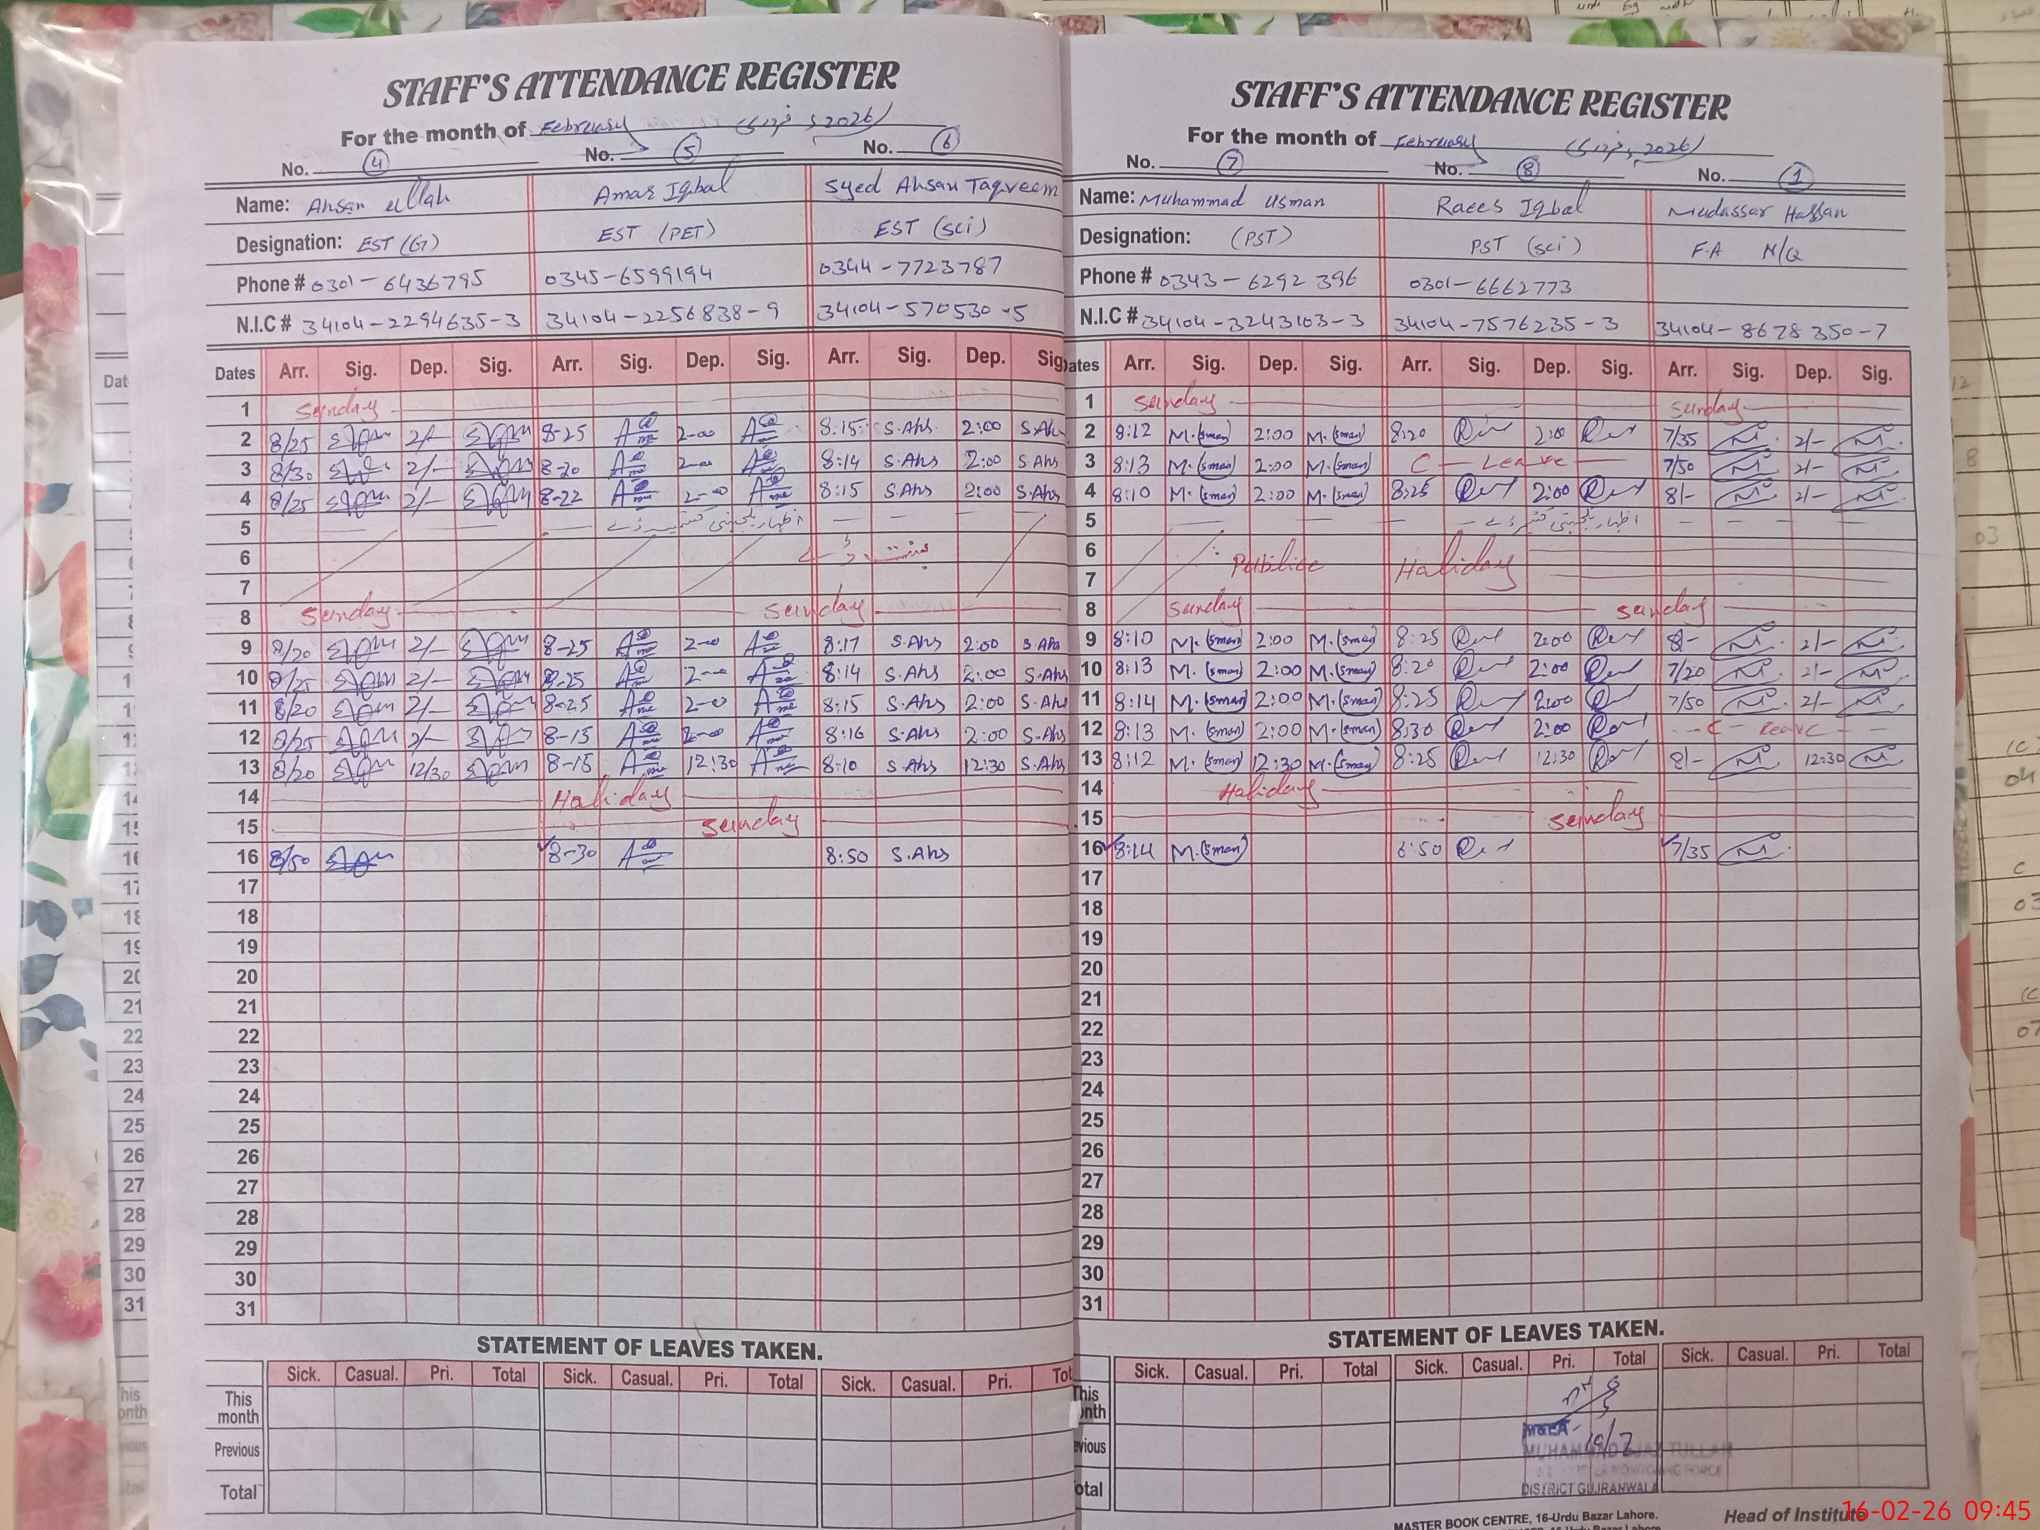 STAFF'S ATTENDANCE REGISTER
For the month of February 2026
No. 4 No. 5 No. 6
Name: Ahsan ullah Amar Iqbal Syed Ahsan Taqveem
Designation: EST (G) EST (PET) EST (sci)
Phone # 0301-6436795 0345-6599194 0344-7723787
N.I.C # 34104-2294635-3 34104-2256838-9 34104-570530-5
Dates Arr. Sig. Dep. Sig. Arr. Sig. Dep. Sig. Arr. Sig. Dep. Sig
1 Sunday
2 8/25 2/- 8-25 2-00 8:15 S.Ahs 2:00 S.Ahs
3 8/30 2/- 8-20 2-00 8:14 S.Ahs 2:00 S.Ahs
4 8/25 2/- 8-22 2-00 8:15 S.Ahs 2:00 S.Ahs
5
6
7
8 Sunday Sunday
9 8/20 2/- 8-25 2-00 8:17 S.Ahs 2:00 S.Ahs
10 8/25 2/- 8-25 2-00 8:14 S.Ahs 2:00 S.Ahs
11 8/20 2/- 8-25 2-00 8:15 S.Ahs 2:00 S.Ahs
12 8/25 2/- 8-15 2-00 8:16 S.Ahs 2:00 S.Ahs
13 8/20 12/30 8-15 12:30 8:10 S.Ahs 12:30 S.Ahs
14 Haliday
15 Sunday
16 8/50 8-30 8:50 S.Ahs
17
18
19
20
21
22
23
24
25
26
27
28
29
30
31
STATEMENT OF LEAVES TAKEN.
Sick. Casual. Pri. Total Sick. Casual. Pri. Total Sick. Casual. Pri. Tot
This month
Previous
Total
STAFF'S ATTENDANCE REGISTER
For the month of February 2026
No. 7 No. 8 No. 1
Name: Muhammad Usman Raees Iqbal Mudassar Hassan
Designation: (PST) PST (sci) F.A N/Q
Phone # 0343-6292396 0301-6662773
N.I.C # 34104-3243103-3 34104-7576235-3 34104-8678350-7
ates Arr. Sig. Dep. Sig. Arr. Sig. Dep. Sig. Arr. Sig. Dep. Sig.
1 Sunday Sunday
2 8:12 M.(sman) 2:00 M.(sman) 8:20 2:00 7/35 2/-
3 8:13 M.(sman) 2:00 M.(sman) C - Leave 7/50 2/-
4 8:10 M.(sman) 2:00 M.(sman) 8:25 2:00 8/- 2/-
5
6 Publice Haliday
7
8 Sunday Sunday
9 8:10 M.(sman) 2:00 M.(sman) 8:25 2:00 8/- 2/-
10 8:13 M.(sman) 2:00 M.(sman) 8:20 2:00 7/20 2/-
11 8:14 M.(sman) 2:00 M.(sman) 8:25 2:00 7/50 2/-
12 8:13 M.(sman) 2:00 M.(sman) 8:30 2:00 C - Leave
13 8:12 M.(sman) 12:30 M.(sman) 8:25 12:30 8/- 12:30
14 Haliday
15 Sunday
16 8:14 M.(sman) 8:50 7/35
17
18
19
20
21
22
23
24
25
26
27
28
29
30
31
STATEMENT OF LEAVES TAKEN.
Sick. Casual. Pri. Total Sick. Casual. Pri. Total Sick. Casual. Pri. Total
This onth
evious
otal
DISTRICT GUJRANWALA
MASTER BOOK CENTRE, 16-Urdu Bazar Lahore.
Head of Institute
16-02-26 09:45